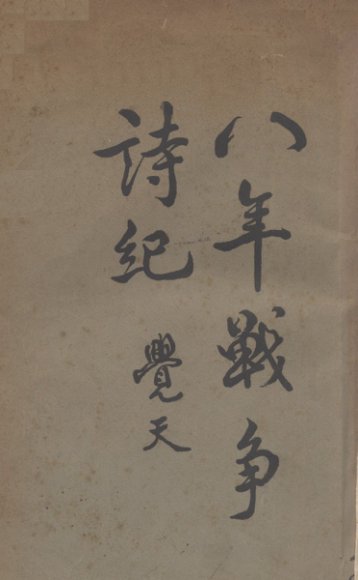 八年戰争
詩紀
覺天